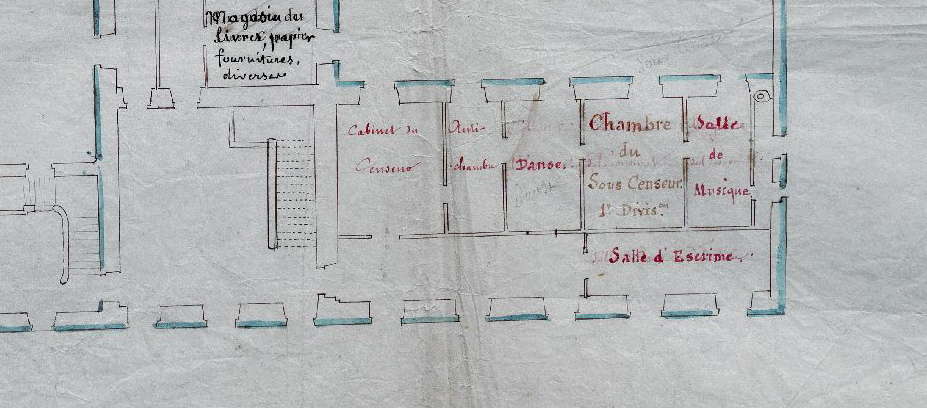 Magasin des
livres, papier
fournitures,
diverses
Cabinet du
Censeur
Anti-
chambre
Danse.
Chambre
du
Sous Censeur.
1re Divis.on
Salle
de
Musique
Salle d'Escrime.